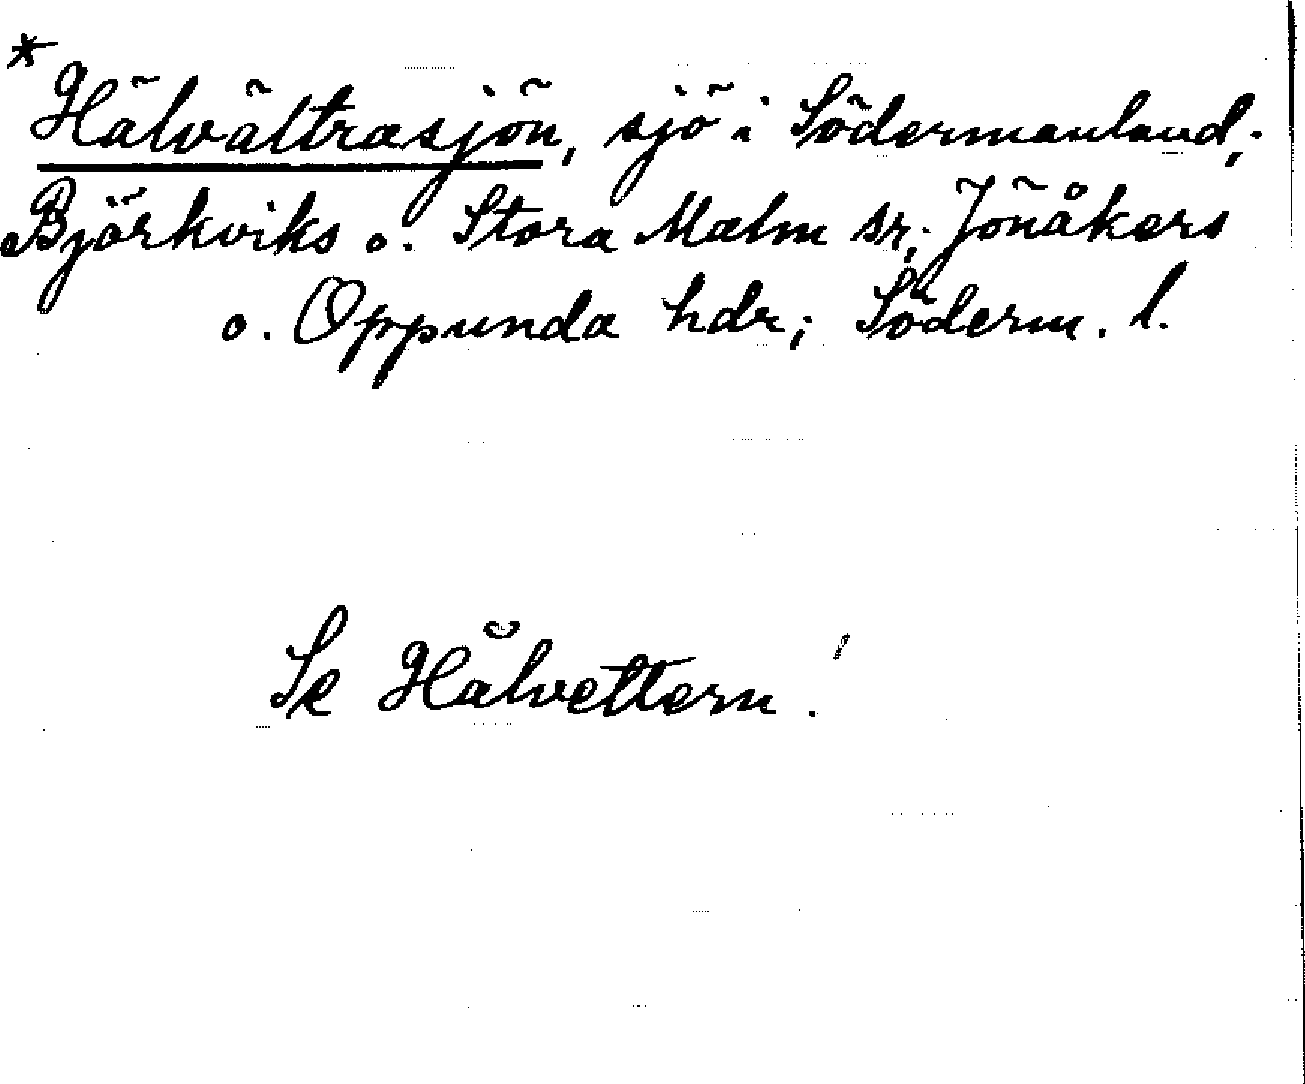 * Hälvältrasjön, sjö i Södermanland;
Björkviks o. Stora Malm sr; Jönåkers
o. Oppunda hdr; Söderm. l.
Se Hålvettern!